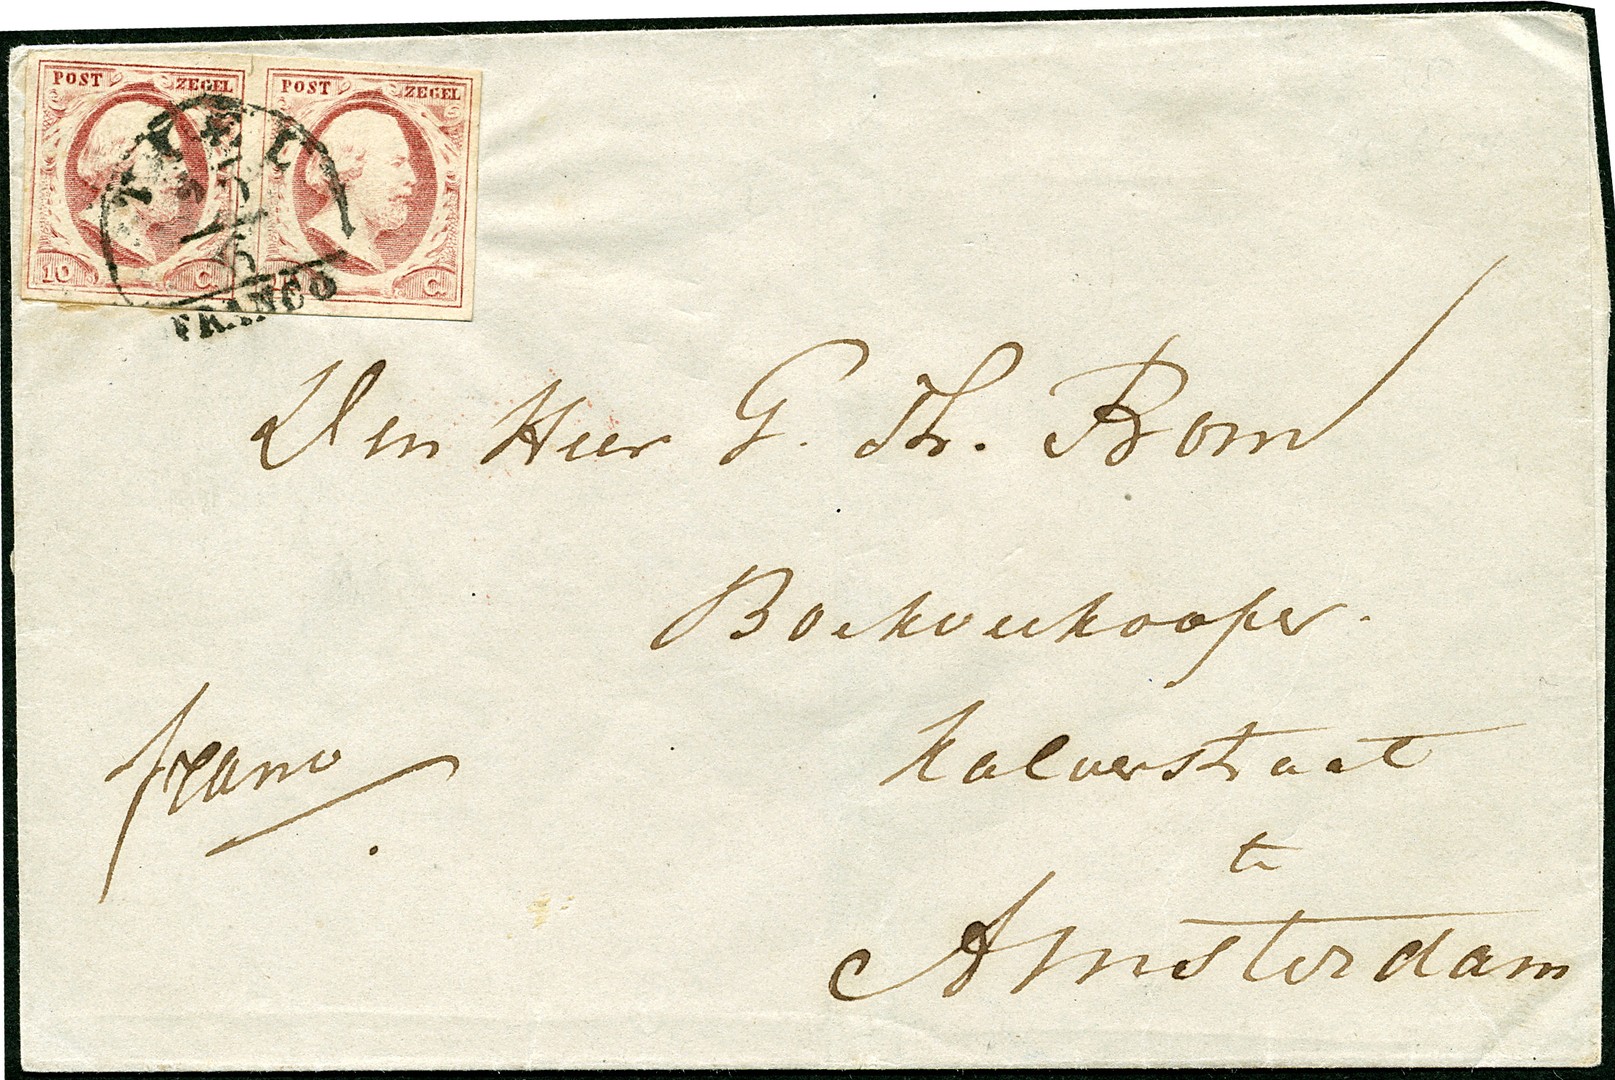 POST ZEGEL POST ZEGEL
TIEL
6
10 C C
FRANCO
Den Heer G. Th. Bom
Boekverkooper.
Kalverstraat
franco
te
Amsterdam